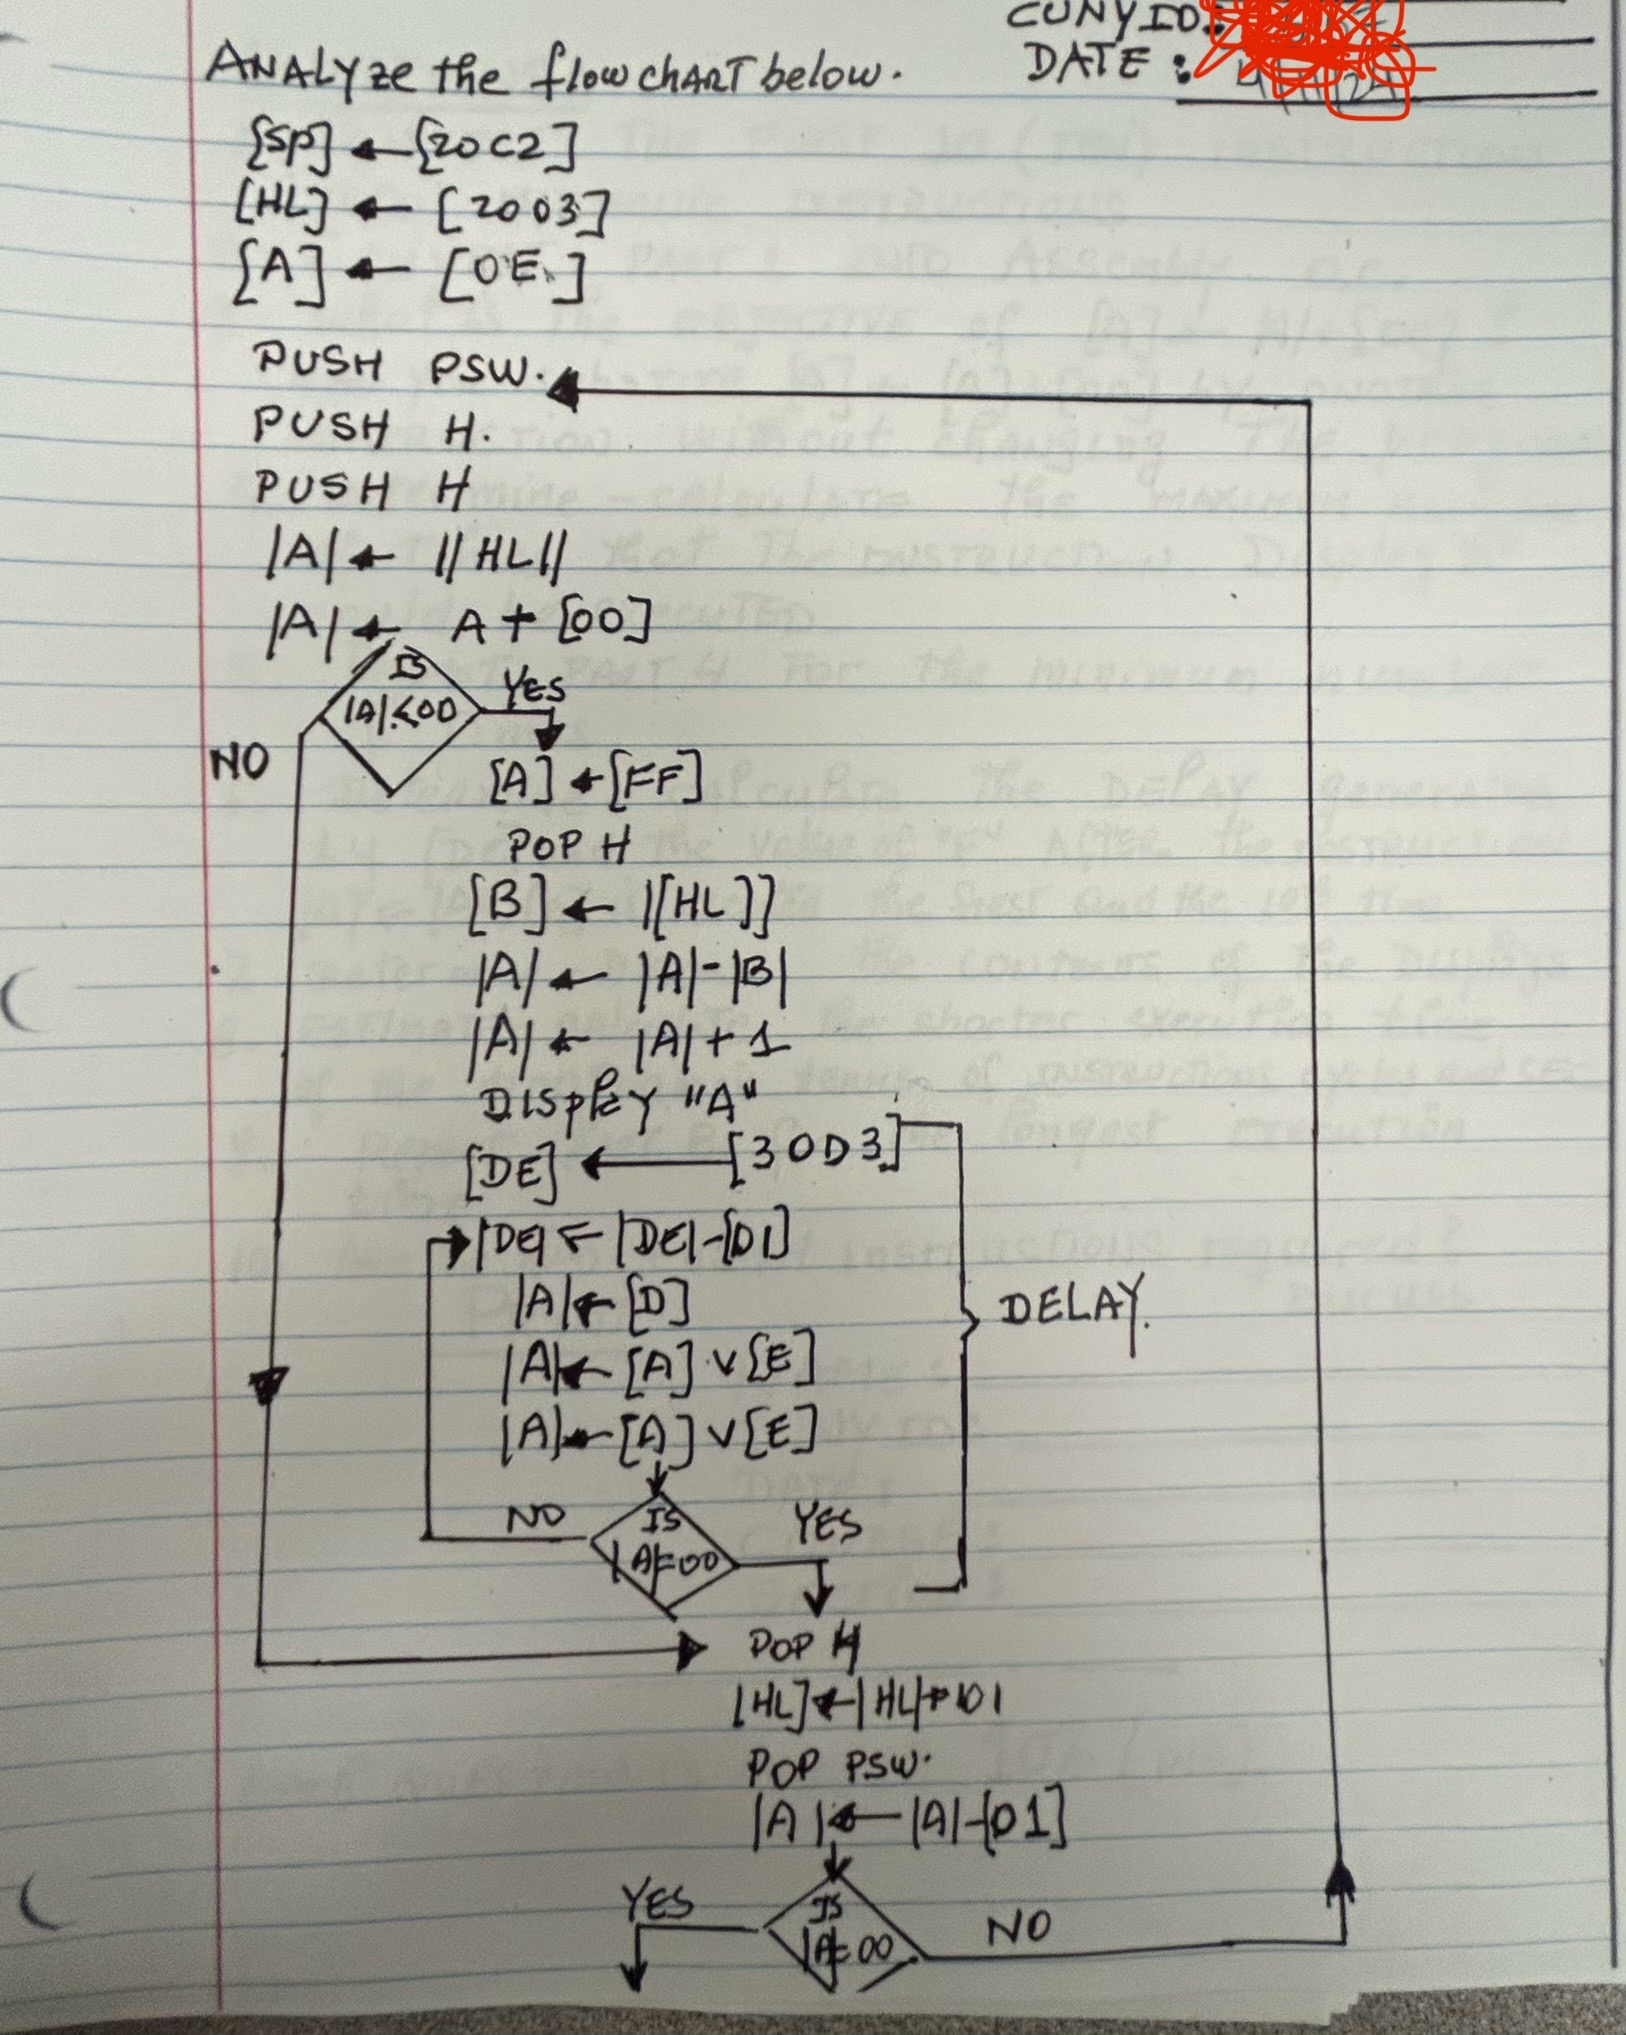 CUNY ID:
ANALYze the flowchART below.
DATE :
[SP] ← [20C2]
[HL] ← [2003]
[A] ← [0E]
PUSH PSW.
PUSH H.
PUSH H
|A| ← ||HL||
|A| ← A + [00]
IS
|A|<00
YES
NO
[A] ← [FF]
POP H
[B] ← |[HL]]
|A| ← |A|-|B|
|A| ← |A|+1
DISplAY "A"
[DE] ← [30D3]
|DE| ← |DE|-[01]
|A| ← [D]
DELAY.
|A| ← [A] v [E]
|A| ← [A] v [E]
NO
IS
|A|=00
YES
POP H
[HL] ← |HL|+01
POP PSW.
|A| ← |A|-[01]
YES
IS
|A|=00
NO